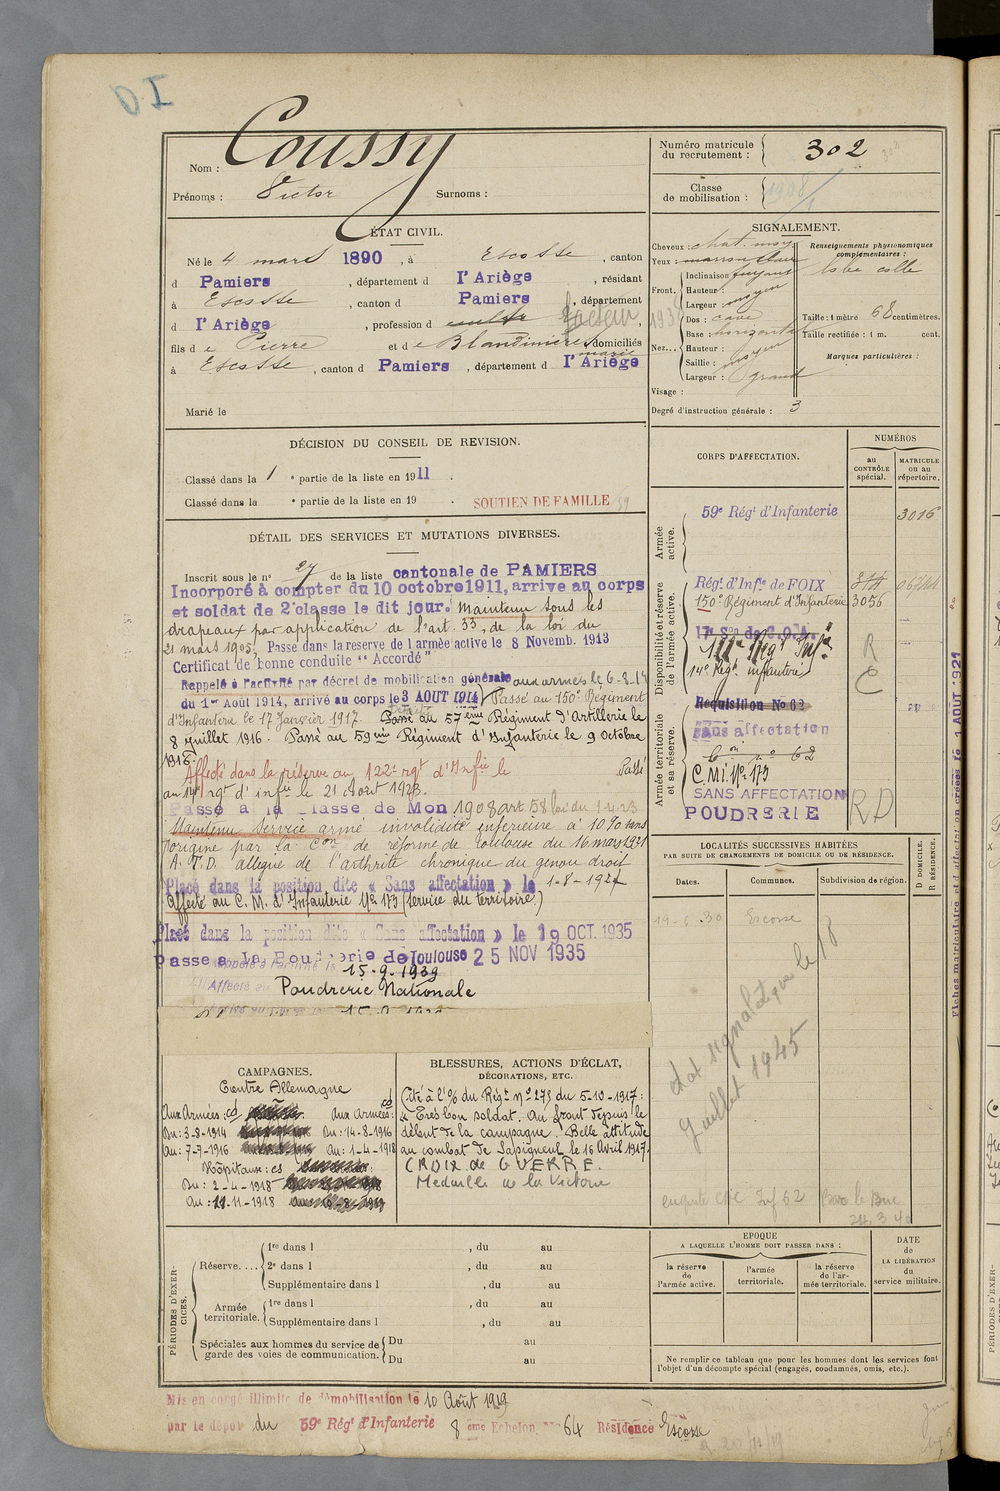 Nom : Coussy
Prénoms : Victor Surnoms :
Numéro matricule du recrutement : 302
Classe de mobilisation : 1908/
ÉTAT CIVIL.
Né le 4 mars 1890, à Escosse, canton
d Pamiers, département d l'Ariège, résidant
à Escosse, canton d Pamiers, département
d l'Ariège, profession d cultr facteur 193
fils de Pierre et de Blandinières domiciliés
marie
à Escosse, canton d Pamiers, département d l'Ariège
Marié le
SIGNALEMENT.
Cheveux : chat. moy
Yeux : marron clair
Front. Inclinaison fuyant
Hauteur :
Largeur : moyen
Nez... Dos : cave
Base : horizontal
Hauteur :
Saillie : moyen
Largeur : grand
Visage :
Degré d'instruction générale : 3
Renseignements physionomiques complémentaires :
lobe colle
Taille : 1 mètre 68 centimètres.
Taille rectifiée : 1 m. cent.
Marques particulières :
DÉCISION DU CONSEIL DE REVISION.
Classé dans la 1e partie de la liste en 1911.
Classé dans la e partie de la liste en 19 .
SOUTIEN DE FAMILLE
DÉTAIL DES SERVICES ET MUTATIONS DIVERSES.
Inscrit sous le n° 27 de la liste cantonale de PAMIERS
Incorporé à compter du 10 octobre 1911, arrive au corps
et soldat de 2e classe le dit jour. Maintenu sous les
drapeaux par application de l'art 33, de la loi du
21 mars 1905, Passe dans la reserve de l'armée active le 8 Novemb. 1913
Certificat de bonne conduite "Accordé"
Rappelé à l'activité par décret de mobilisation générale aux armées le 6.8.14
du 1er Août 1914, arrivé au corps le 3 AOUT 1914 Passé au 150e Régiment
d'Infanterie le 17 Janvier 1917. Passé au 57ème Régiment d'Artillerie le
8 Juillet 1916. Passé au 59ème Régiment d'Infanterie le 9 octobre
1916.
Affecté dans la réserve au 122e rgt d'Infie le Passé
au 14e rgt d'infie le 21 Août 1923.
Passé à la classe de Mon 1908 art 58 loi du 1-4-23
Maintenu Service armé invalidité inférieure à 10% sans
origine par la Con de réforme de Toulouse du 16 mars 1931
(A.T.D. allegue de l'arthrite chronique du genou droit
Placé dans la position dite « Sans affectation » le 1-8-192
Affecté au C. M. d'Infanterie N° 173 (service du territoire)
Placé dans la position dite « Sans affectation » le 19 OCT. 1935
Passe a la Poudrerie de Toulouse 25 NOV 1935
Rappelé à l'activité le 15.9.1939
Affecté à Poudrerie Nationale
CORPS D'AFFECTATION.
NUMÉROS
au CONTRÔLE spécial.
MATRICULE ou au répertoire.
Armée active.
59e Régt d'Infanterie 3016
Disponibilité et réserve de l'armée active.
Régt d'Infie de FOIX
150e Régiment d'Infanterie 3056
17e Son de C.O.A.
14e Régt infanterie
R
Armée territoriale et sa réserve.
Réquisition No 62
sans affectation
Con n° 62
C.M.I. N° 173
SANS AFFECTATION
POUDRERIE
RD
LOCALITÉS SUCCESSIVES HABITÉES
PAR SUITE DE CHANGEMENTS DE DOMICILE OU DE RÉSIDENCE.
D DOMICILE. R RÉSIDENCE.
Dates. Communes. Subdivision de région.
Escosse
état signalétique le 18
Juillet 1945
CAMPAGNES.
Contre Allemagne
Aux Armées : cd Aux Armées : cd
Du : 3-8-1914 Du : 14-8-1916
Au : 7-7-1916 Au : 1-4-1918
Hôpitaux : cs
Du : 2-4-1918
Au : 11-11-1918
BLESSURES, ACTIONS D'ÉCLAT,
DÉCORATIONS, ETC.
Cité à l'% du Régt N° 275 du 5-10-1917 :
"Très bon soldat. Au front depuis le
début de la campagne. Belle attitude
au combat de Sapigneul le 16 Avril 1917.
CROIX de GUERRE.
Médaille de la Victoire
PÉRIODES D'EXERCICES.
Réserve.... 1re dans l , du au
2e dans l , du au
Supplémentaire dans l , du au
Armée territoriale. 1re dans l , du au
Supplémentaire dans l , du au
Spéciales aux hommes du service de garde des voies de communication. Du au
Du au
EPOQUE
A LAQUELLE L'HOMME DOIT PASSER DANS :
la réserve de l'armée active.
l'armée territoriale.
la réserve de l'armée territoriale.
DATE de LA LIBÉRATION du service militaire.
Ne remplir ce tableau que pour les hommes dont les services font
l'objet d'un décompte spécial (engagés, condamnés, omis, etc.).
Mis en congé illimité de démobilisation le 10 Août 1919
par le dépôt du 59e Régt d'Infanterie 8 ème Echelon, No 64 Résidence Escosse